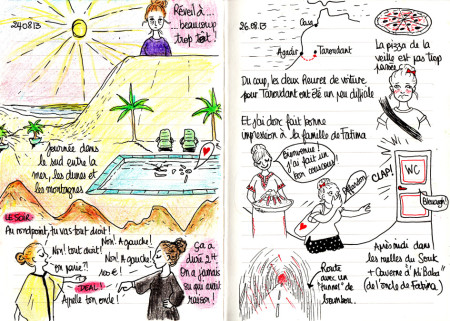 24.08.13
Réveil à ...
... beaucoup
trop tôt !
Journée dans
le sud entre la
mer, les dunes et
les montagnes
LE SOIR
Au rondpoint, tu vas tout droit !
Non ! A gauche !
Non ! tout droit !
Non ! A gauche !
On parie ?!
DEAL !
Appelle ton oncle !
ça a
duré 2H
On a jamais
su qui avait
raison !
26.08.13
Casa
Agadir
Taroudant
La pizza de la
veille est pas trop
passée
Du coup, les deux heures de voiture
pour Taroudant ont été un peu difficile
Et j'ai donc fait bonne
impression à la famille de Fatima
Bienvenue !
j'ai fait un
bon couscous !
CLAP!
WC
Bleuargh !
Route
avec un
"tunnel" de
bambou..
Après midi dans
les ruelles du Souk
+ Caverne d'Ali Baba
(de l'oncle de Fatima)